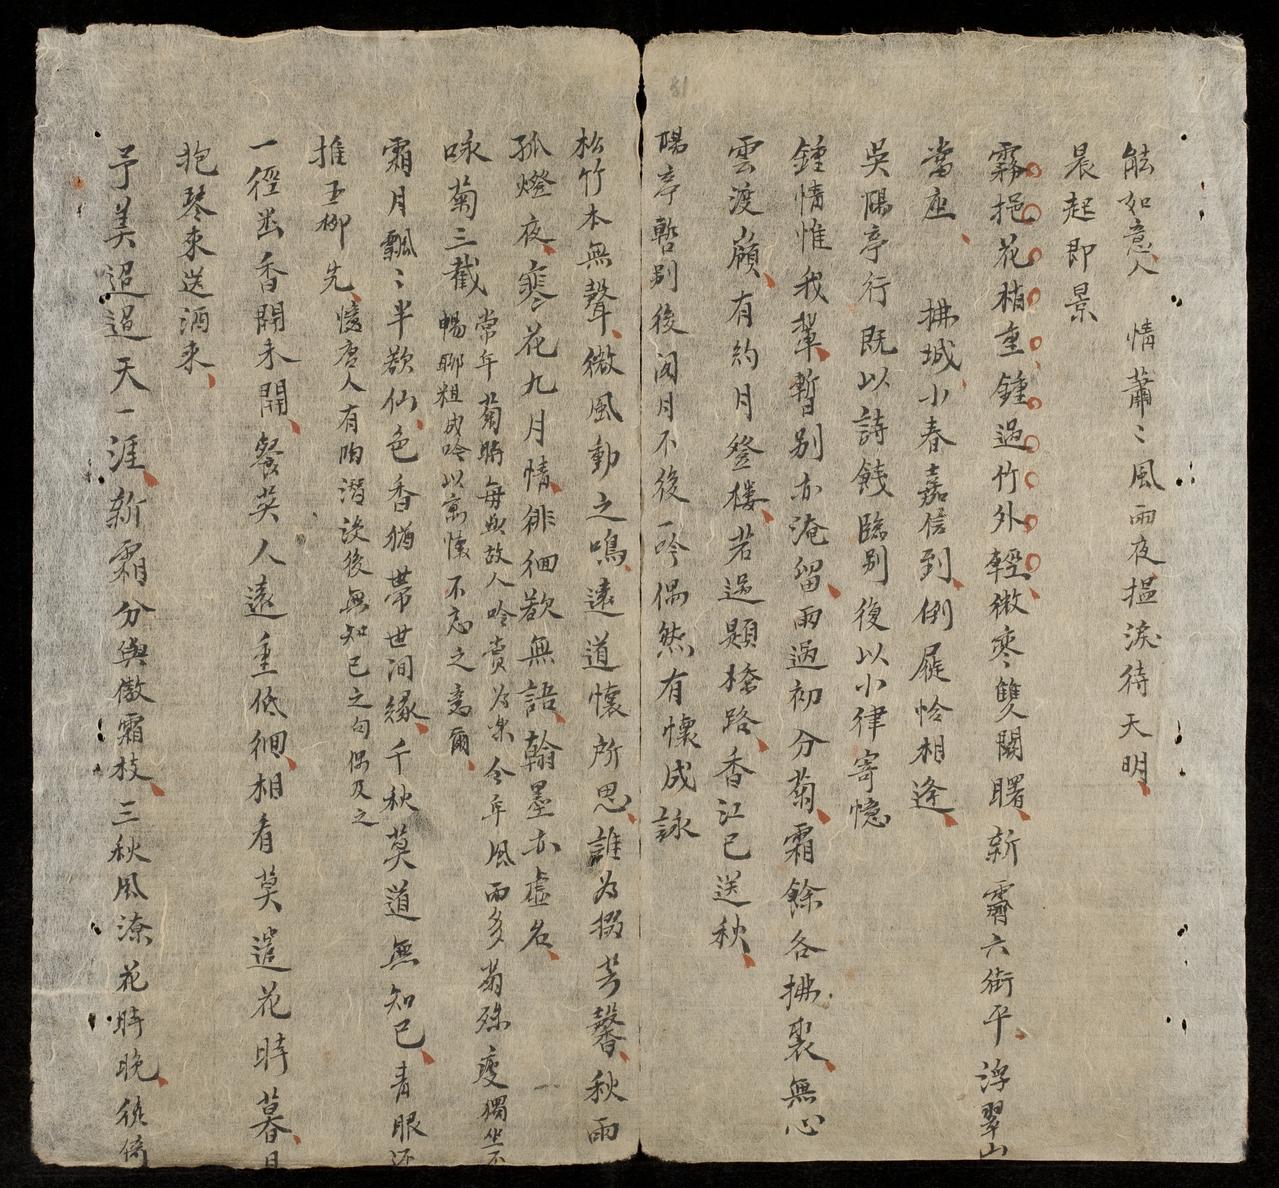 能如意人　情蕭〻風雨夜揾淚待天明
晨起即景
霧挹花梢重鍾過竹外輕微寒雙闕曙新霽六街平浮翠山
當座　拂城小春嘉信到倒屣恰相逢
吳陽亭行　既以詩餞臨别復以小律寄憶
鍾情惟我輩暫别亦淹留雨過初分菊霜餘各拂裘無心
雲渡嶺有約月登樓若過題橋路香江已送秋
陽亭暫别後閱月不後一吟偶然有懷成詠
松竹本無聲微風動之鳴遠道懷所思誰為掇芳馨秋雨
孤燈夜寒花九月情徘徊欲無語翰墨亦虛名
咏菊三截　常年菊時每與故人吟賞為樂今年風雨多菊殊瘦獨坐不
暢聊粗成吟以寓懷不忘之意爾
霜月飄〻半欲仙色香猶帶世间緣千秋莫道無知己青眼还
推五柳先　憶唐人有陶潛没後無知已之句偶及之
一徑幽香開未開餐英人遠重低徊相看莫遣花時暮月
抱琴來送酒來
予美迢迢天一涯新霜分與傲霜枝三秋風潦花時晚徙倚